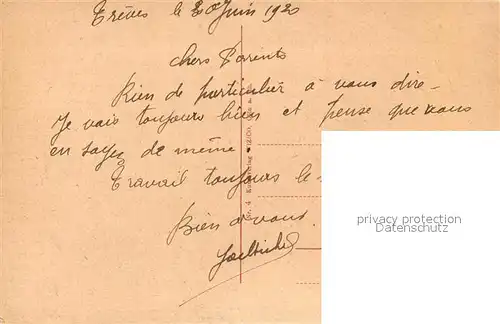 Trèves le 20 Juin 1920
Chers Parents
Rien de particulier à vous dire.
Je vais toujours bien et pense que vous
en soyez de même
Travail toujours le
Bien à vous.
privacy protection
ansichtskartenversand.com
Nr. 4